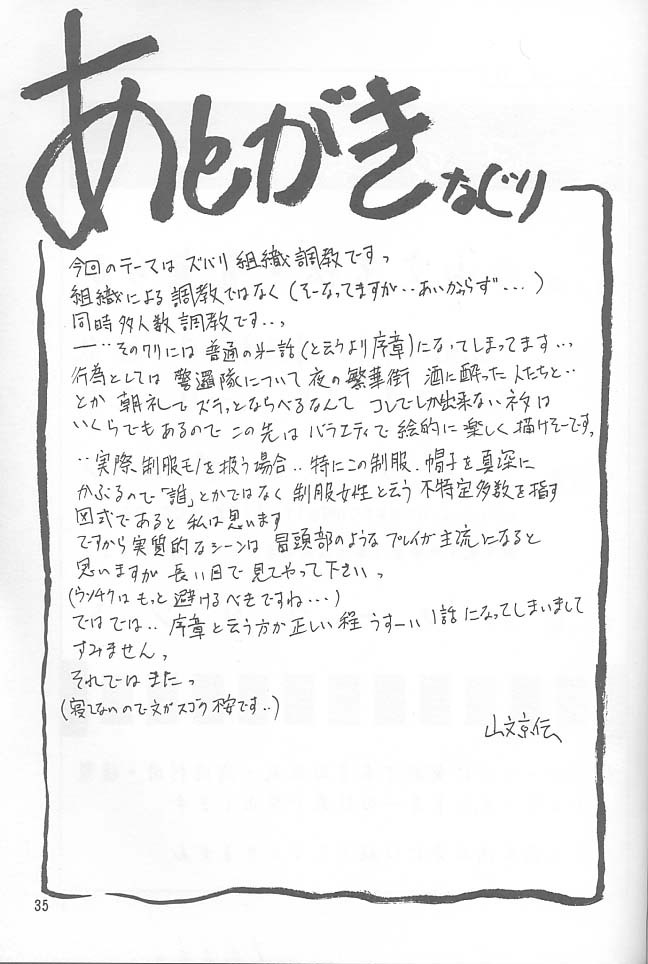 あとがき なぐり
今回のテーマは ズバリ 組織調教ですっ
組織による 調教ではなく (そーなってますが‥あいかわらず‥‥)
同時多人数調教です‥っ
一‥そのワリには 普通の第一話(と云うより序章)になってしまってます‥、
行為としては 警邏隊について 夜の繁華街 酒に酔った人たちと‥
とか 朝礼で ズラッとならべるなんて コレでしか出来ないネタは
いくらでもあるので この先は バラエティで 絵的に楽しく描けそーです。
‥実際、制服モノを扱う場合‥特にこの制服、帽子を真深に
かぶるので「誰」とかではなく 制服女性と云う 不特定多数を指す
図式であると 私は思います
ですから実質的なシーンは 冒頭部のような プレイが主流になると
思いますが 長い目で見てやって下さいっ
(ウンチクは もっと 避けるべきですね‥‥)
ではでは‥ 序章と云う方が正しい程 うすーい 1話になってしまいまして
すみません。
それではまたっ
(寝てないので文がスゴク不安です‥)
山文京伝
35